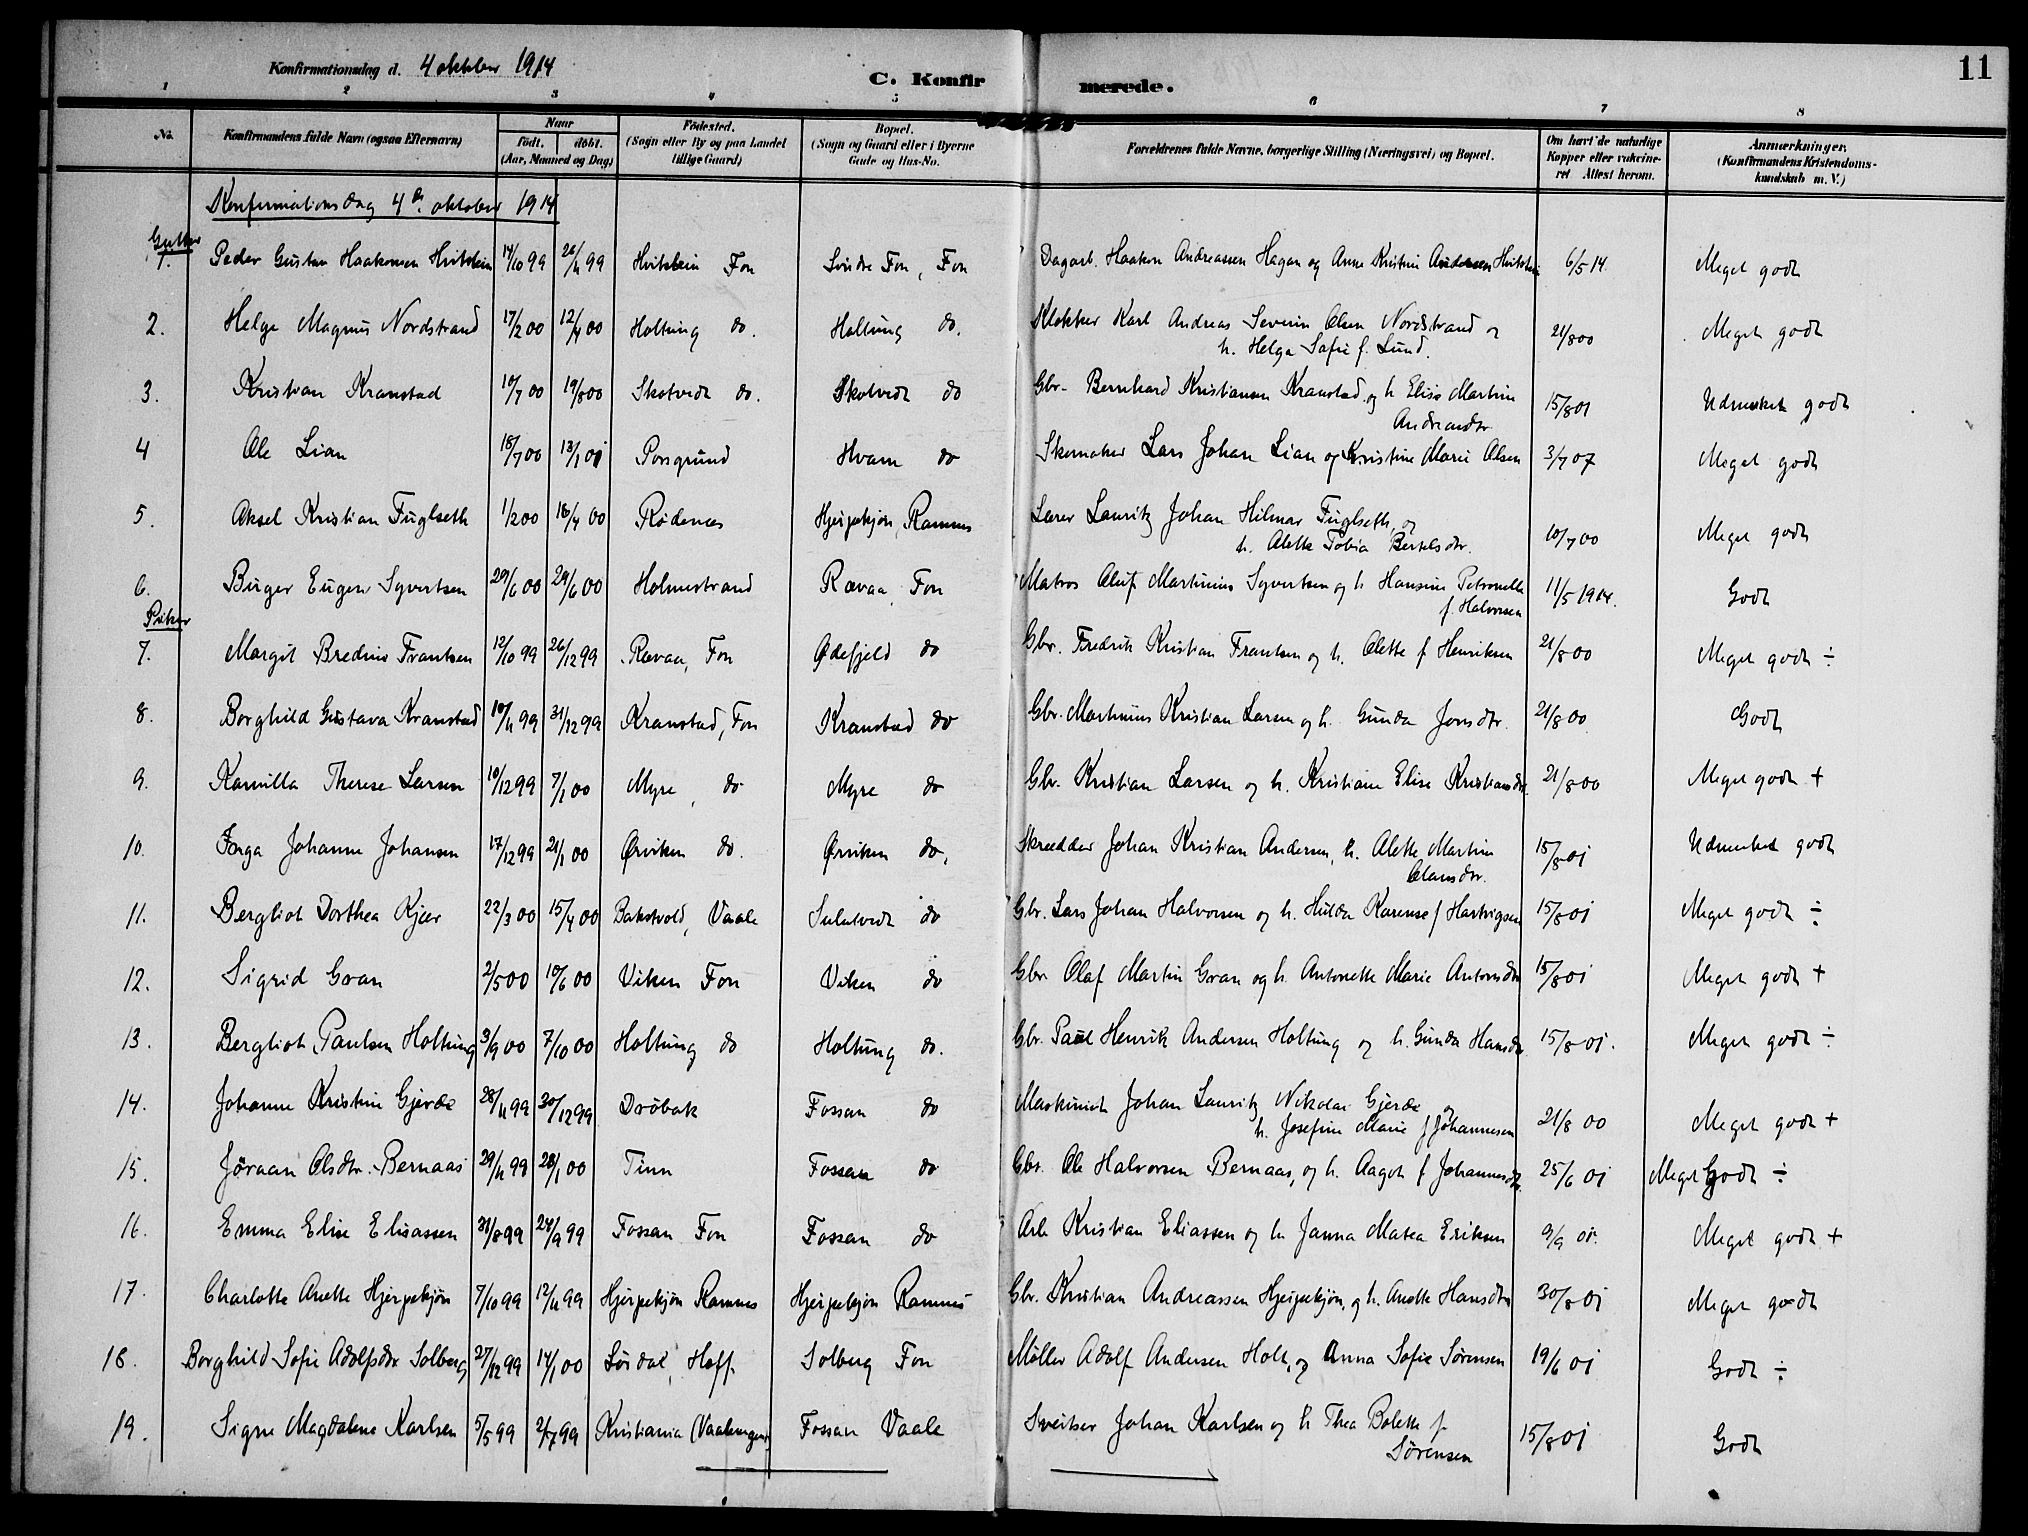 Konfirmationsdag d. 4 oktober 1914
C. Konfirmerede.
11
1 2 3 4 5 6 7 8
No. Konfirmandens fulde Navn (ogsaa Efternavn) Naar født. døbt. (Aar, Maaned og Dag) Fødested. (Sogn eller By og paa Landet tillige Gaard) Bopæl. (Sogn og Gaard eller i Byerne Gade og Hus-No. Forældrenes fulde Navne, borgerlige Stilling (Næringsvei) og Bopæl. Om havt de naturlige Kopper eller vakcineret Attest herom. Anmærkninger. (Konfirmandens Kristendomskundskab m. V.)
Konfirmationsdag 4de oktober 1914
Gutter
1. Peder Gustav Haakonsen Hvitstein 14/10 99 26/11 99 Hvitstein Fon Søndre Fon, Fon Dagarb. Haakon Andreassen Hagan og Anne Kristine Andersen Hvitstein 6/5 14. Meget godt
2. Helge Magnus Nordstrand 17/2 00 12/4 00 Holtung do. Holtung do. Klokker Karl Andreas Severin Olsen Nordstrand og
h. Helga Sofie f. Lund. 21/8 00 Meget godt
3. Kristian Kranstad 10/7 00 19/8 00 Skotvedt do. Skotvedt do Gbr. Bernhard Kristiansen Kranstad og h Elise Martine
Andreasdtr 15/8 01 Udmerket godt
4 Ole Lian 18/7 00 13/1 01 Porsgrund Hvam do Skomaker Lars Johan Lian og Kristine Marie Olsen 3/7 07 Meget godt
5. Aksel Kristian Fuglseth 1/2 00 16/4 00 Rødenes Hjerpekjøn, Ramnes Lærer Lauritz Johan Hilmar Fuglseth, og
h. Alette Tobia Bertelsdtr. 10/7 00 Meget godt
6. Birger Eugen Syvertsen 20/6 00 29/6 00 Holmestrand Rævaa, Fon Matros Oluf Martinius Syvertsen og h Hansine Petronelle
f. Halvorsen 11/5 1914. Godt
Piker
7. Margit Bredine Frantsen 12/10 99 26/12 99 Rævaa, Fon Ødefjeld do Gbr. Fredrik Kristian Frantsen og h. Alette f Henriksen 21/8 00 Meget godt ÷
8. Borghild Gustava Kranstad 10/11 99 31/12 99 Kranstad, Fon Kranstad do Gbr. Martinius Kristian Larsen og h. Gunda Jonsdtr. 21/8 00 Godt
9. Kamilla Therese Larsen 10/12 99 7/1 00 Myre, do Myre do Gbr. Kristian Larsen og h. Kristiane Elise Kristiansdtr. 21/8 00 Meget godt +
10. Inga Johanne Johansen 17/12 99 21/1 00 Ørviken do. Ørviken do. Skrædder Johan Kristian Andersen, h. Alette Martine
Olausdtr. 15/8 01 Udmerket godt
11. Bergliot Dorthea Kjær 22/3 00 15/4 00 Bakstvold, Vaale Sulutvedt do Gbr. Lars Johan Halvorsen og h. Hulda Karense f Hartvigsen 15/8 01 Meget godt ÷
12. Sigrid Gran 2/5 00 10/6 00 Viken Fon Viken do Gbr. Olaf Martin Gran og h. Antonette Marie Antonsdtr 15/8 01 Meget godt +
13. Bergliot Paulsen Holtung 3/9 00 7/10 00 Holtung do Holtung do. Gbr. Paul Henrik Andersen Holtung og h. Gunda Hansdtr. 15/8 01. Meget godt ÷
14. Johanne Kristine Gjerde 28/11 99 30/12 99 Drøbak Fossan do Maskinist Johan Lauritz Nikolai Gjerde og
h. Josefine Marie f Johannesen 21/8 00 Meget godt +
15. Jøraan Olsdtr. Bernaas 29/11 99 28/1 00 Tinn Fossan do Gbr. Ole Halvorsen Bernaas, og h. Aagot f Johannesdtr. 25/6 01 Meget Godt ÷
16. Emma Elise Eliassen 31/8 99 24/9 99 Fossan Fon Fossan do Arb Kristian Eliassen og h Janna Matea Eriksen 9/9 01. Meget godt +
17. Charlotte Anette Hjerpekjøn 7/10 99 12/11 99 Hjerpekjøn Ramnes Hjerpekjøn Ramnes Gbr. Kristian Andreassen Hjerpekjøn, og h. Anette Hansdtr 30/8 01 Meget godt
18. Borghild Sofie Adolfsdtr Solberg 27/12 99 14/1 00 Sørdal, Hoff. Solberg Fon Møller Adolf Andersen Holt, og Anna Sofie Sørensen 19/6 01 Godt ÷
19. Signe Magdalene Karlsen 5/5 99 2/7 99 Kristiania (Vaalerengen) Fossan Vaale Sveitser Johan Karlsen og h Thea Bolette f
Sørensen 15/8 01 Godt